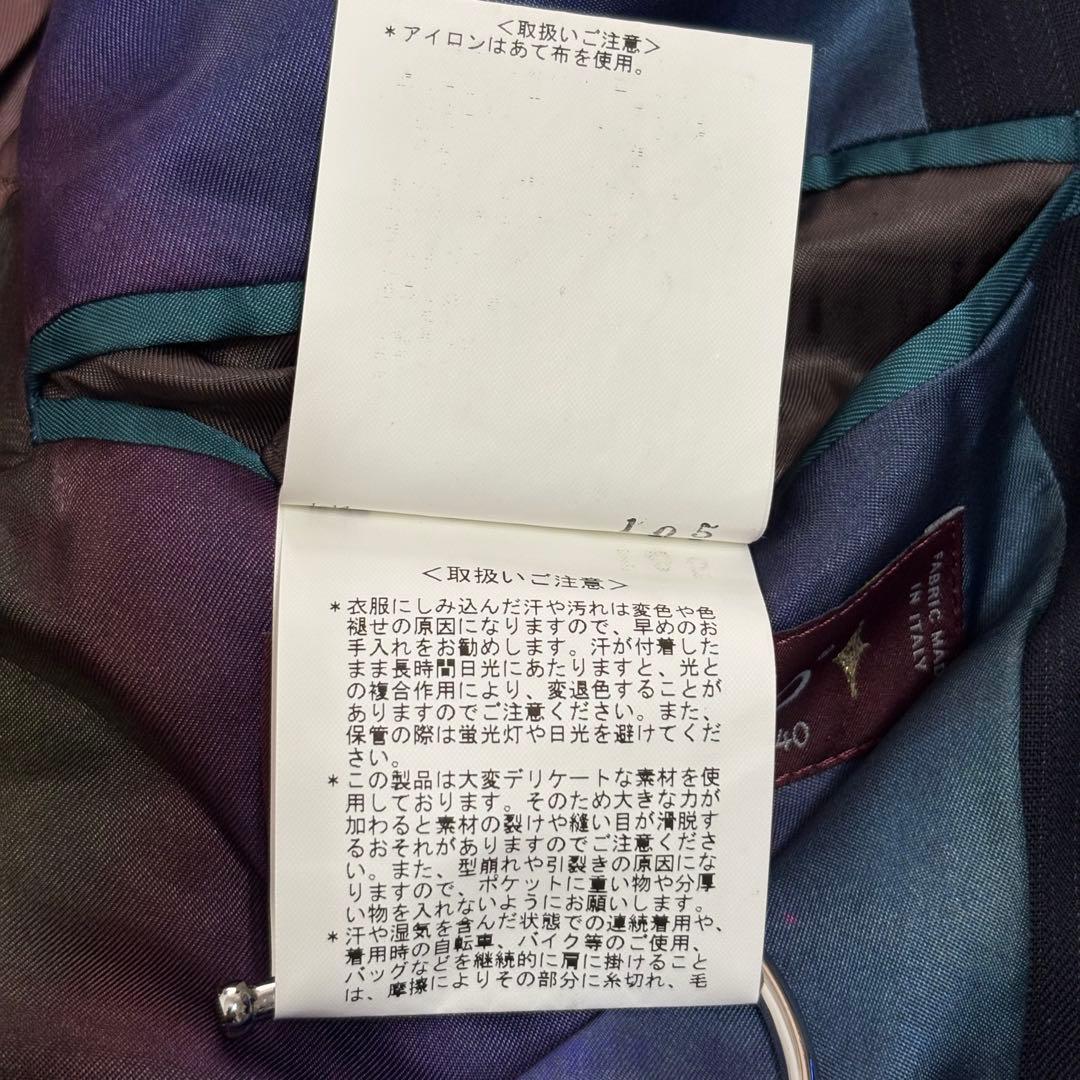 <取扱いご注意>
*アイロンはあて布を使用。
105
<取扱いご注意>
*衣服にしみ込んだ汗や汚れは変色や色
褪せの原因になりますので、早めのお
手入れをお勧めします。汗が付着した
まま長時間日光にあたりますと、光と
の複合作用により、変退色することが
ありますのでご注意ください。また、
保管の際は蛍光灯や日光を避けてくだ
さい。
*この製品は大変デリケートな素材を使
用しております。そのため大きな力が
加わると素材の裂けや縫い目が滑脱す
るおそれがありますのでご注意くださ
い。また、型崩れや引裂きの原因にな
りますので、ポケットに重い物や分厚
い物を入れないようにお願いします。
*汗や湿気を含んだ状態での連続着用や、
着用時の自転車、バイク等のご使用、
バッグなどを継続的に肩に掛けること
は、摩擦によりその部分に糸切れ、毛
FABRIC MAD
IN ITALY
40